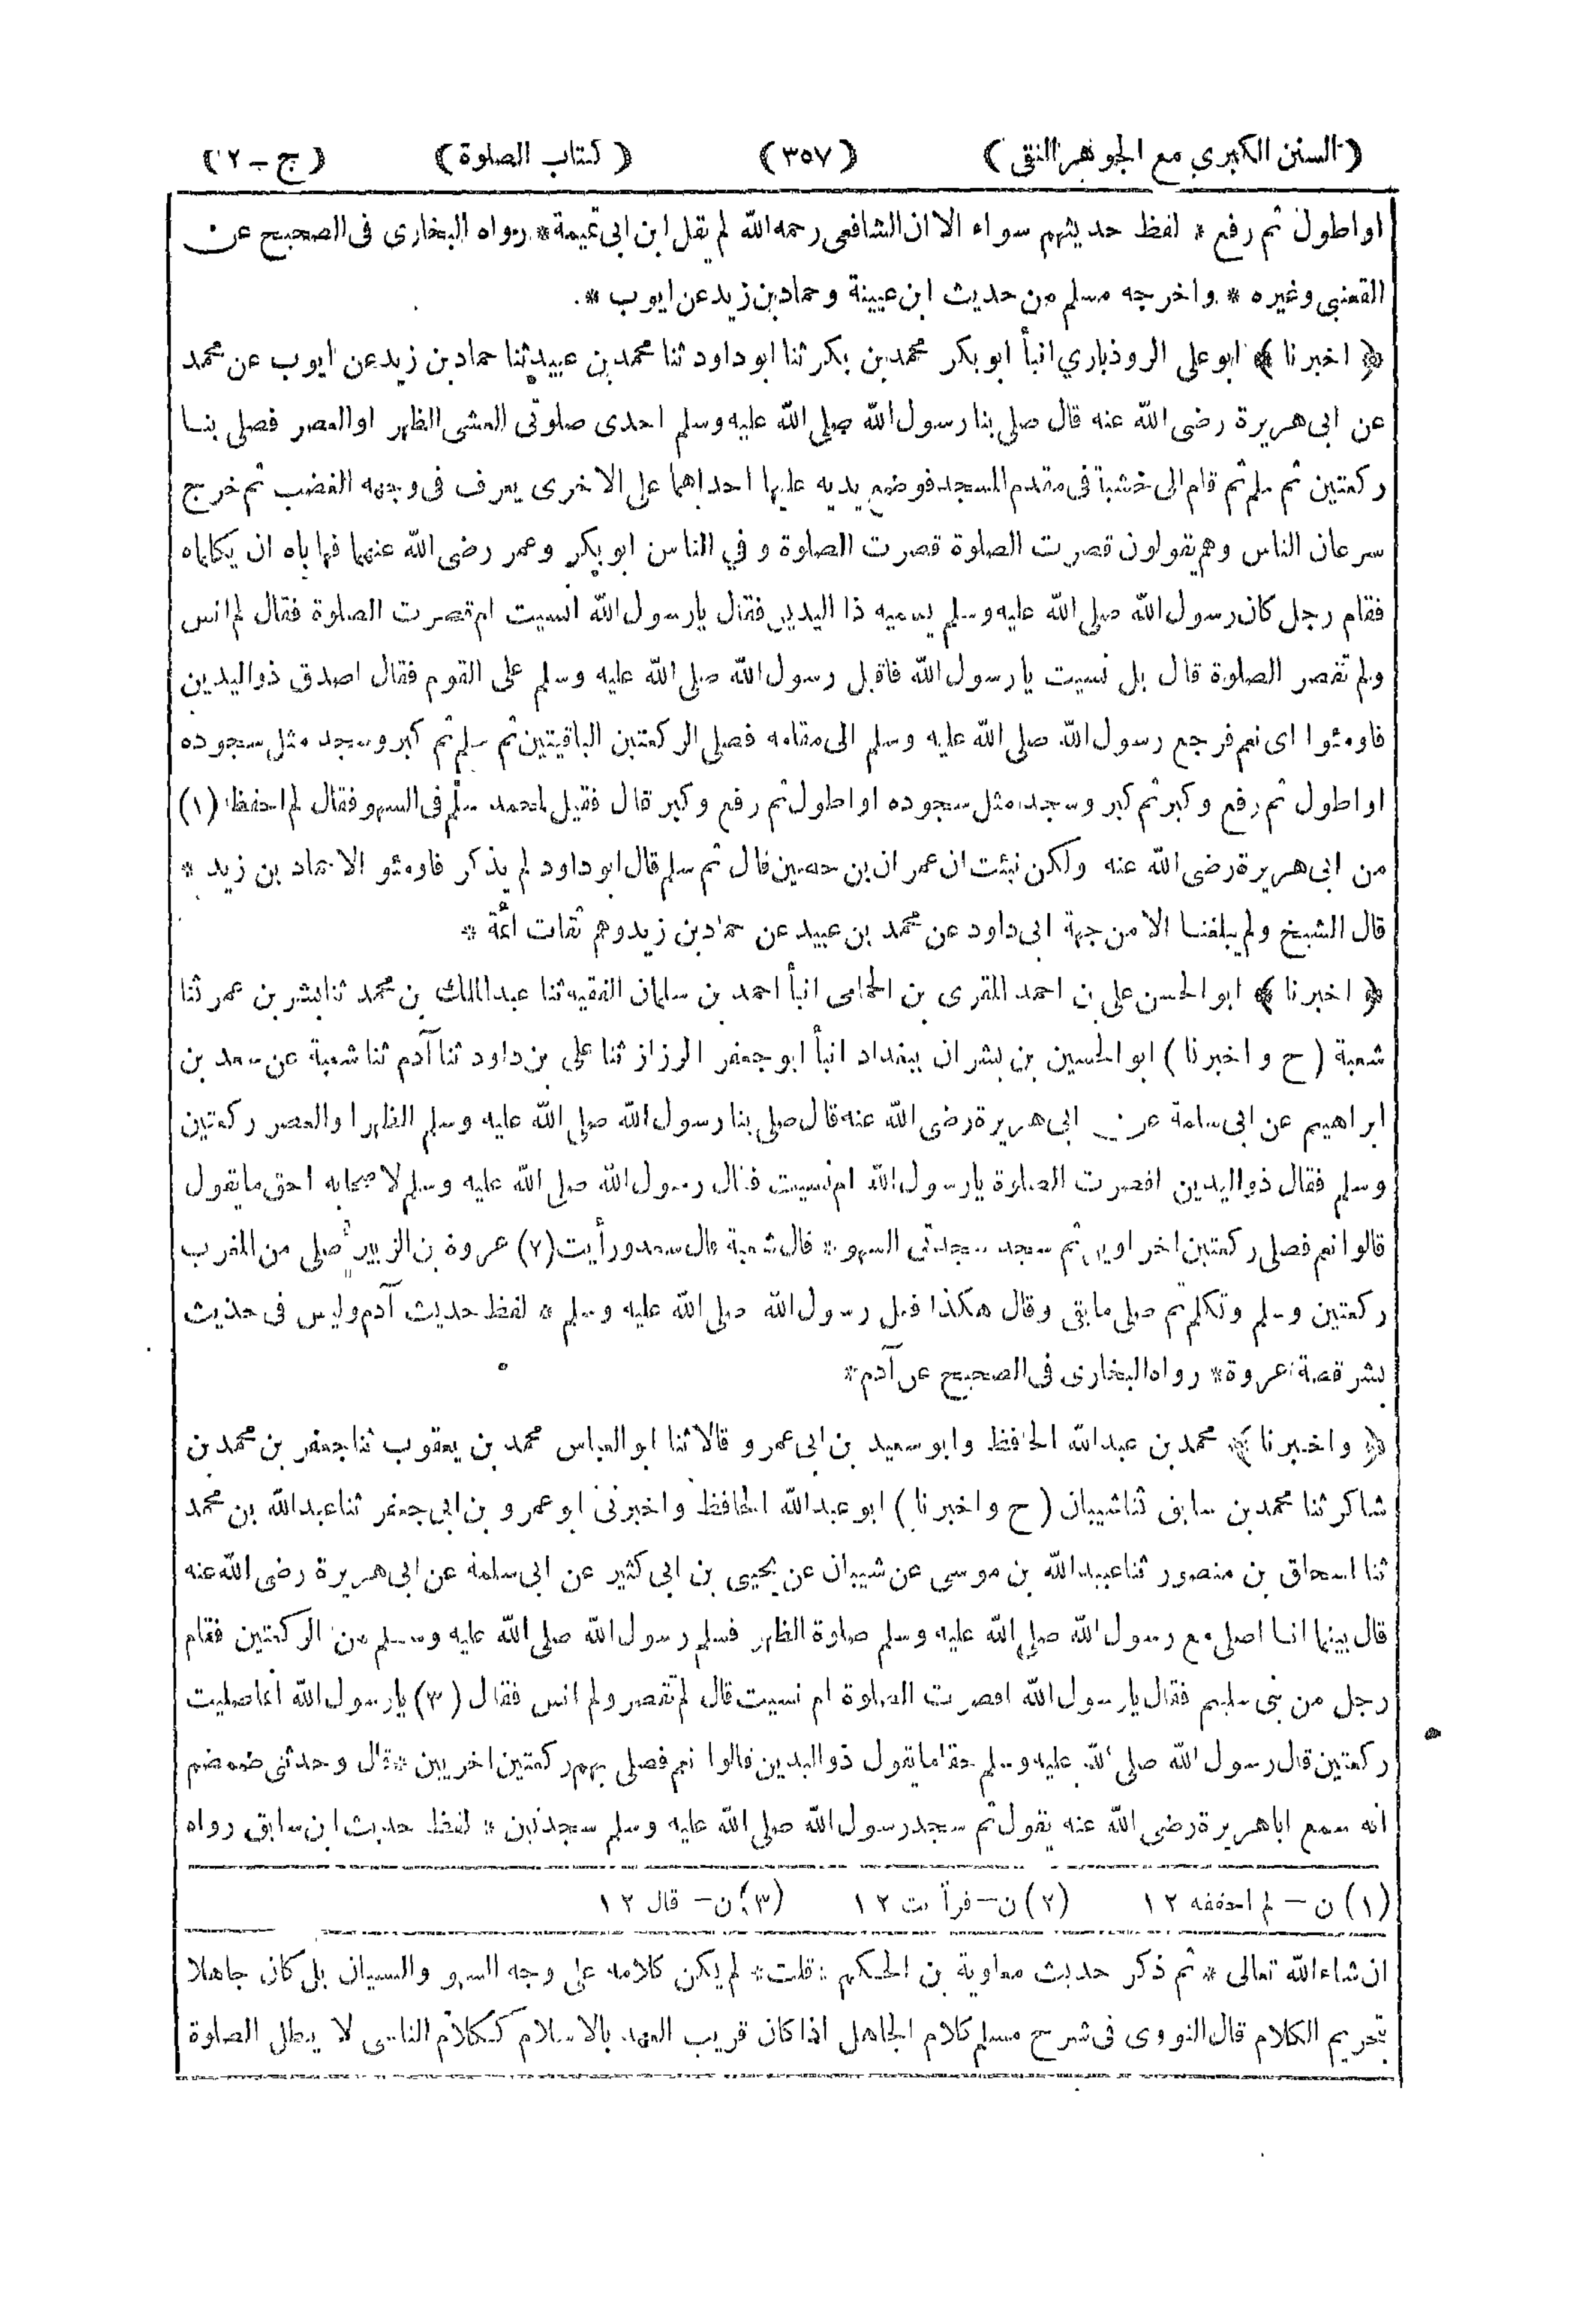 (السنن الكبري مع الجوهر النقى) (٣٥٧) (كتاب الصلوة) (ج - ٢)
او اطول ثم رفع * لفظ حديثهم سواء الا ان الشافعى رحمه الله لم يقل ابن ابى تميمة * رواه البخارى فى الصحيح عن
القعنبى وغيره * واخرجه مسلم من حديث ابن عيينة وحماد بن زيد عن ايوب *
﴿ اخبرنا ﴾ ابو على الروذباري انبأ ابو بكر محمد بن بكر ثنا ابو داود ثنا محمد بن عبيد ثنا حماد بن زيد عن ايوب عن محمد
عن ابى هريرة رضى الله عنه قال صلى بنا رسول الله صلى الله عليه وسلم احدى صلوتى العشى الظهر او العصر فصلى بنا
ركعتين ثم سلم ثم قام الى خشبة فى مقدم المسجد فوضع يديه عليها احداهما على الاخرى يعرف فى وجهه الغضب ثم خرج
سرعان الناس وهم يقولون قصرت الصلوة قصرت الصلوة و في الناس ابو بكر وعمر رضى الله عنهما فهاباه ان يكلماه
فقام رجل كان رسول الله صلى الله عليه وسلم يسميه ذا اليدين فقال يا رسول الله انسيت ام قصرت الصلوة فقال لم انس
ولم تقصر الصلوة قال بل نسيت يا رسول الله فاقبل رسول الله صلى الله عليه وسلم على القوم فقال اصدق ذو اليدين
فاومئوا اى نعم فرجع رسول الله صلى الله عليه وسلم الى مقامه فصلى الركعتين الباقيتين ثم سلم ثم كبر وسجد مثل سجوده
او اطول ثم رفع وكبر ثم كبر وسجد مثل سجوده او اطول ثم رفع وكبر قال فقيل لمحمد سلم فى السهو فقال لم احفظ (١)
من ابى هريرة رضى الله عنه ولكن نبئت ان عمران بن حصين قال ثم سلم قال ابو داود لم يذكر فاومئو الا حماد بن زيد *
قال الشيخ ولم يبلغنا الا من جهة ابى داود عن محمد بن عبيد عن حماد بن زيد وهم ثقات ائمة *
﴿ اخبرنا ﴾ ابو الحسن على بن احمد المقرى بن الحمامى انبأ احمد بن سلمان الفقيه ثنا عبد الملك بن محمد ثنا بشر بن عمر ثنا
شعبة (ح و اخبرنا) ابو الحسين بن بشران ببغداد انبأ ابو جعفر الرزاز ثنا على بن داود ثنا آدم ثنا شعبة عن سعد بن
ابراهيم عن ابى سلمة عن ابى هريرة رضى الله عنه قال صلى بنا رسول الله صلى الله عليه وسلم الظهر او العصر ركعتين
وسلم فقال ذو اليدين اقصرت الصلوة يا رسول الله ام نسيت فقال رسول الله صلى الله عليه وسلم لاصحابه احق ما يقول
قالوا نعم فصلى ركعتين اخراوين ثم سجد سجدتى السهو * قال شعبة قال سعد ورأيت (٢) عروة بن الزبير صلى من المغرب
ركعتين وسلم وتكلم ثم صلى ما بقى وقال هكذا فعل رسول الله صلى الله عليه وسلم * لفظ حديث آدم وليس فى حديث
بشر قصة عروة * رواه البخارى فى الصحيح عن آدم *
﴿ واخبرنا ﴾ محمد بن عبد الله الحافظ وابو سعيد بن ابى عمرو قالا ثنا ابو العباس محمد بن يعقوب ثنا جعفر بن محمد بن
شاكر ثنا محمد بن سابق ثنا شيبان (ح و اخبرنا) ابو عبد الله الحافظ واخبرنى ابو عمرو بن ابى جعفر ثنا عبد الله بن محمد
ثنا اسحاق بن منصور ثنا عبيد الله بن موسى عن شيبان عن يحيى بن ابى كثير عن ابى سلمة عن ابى هريرة رضى الله عنه
قال بينما انا اصلى مع رسول الله صلى الله عليه وسلم صلوة الظهر فسلم رسول الله صلى الله عليه وسلم من الركعتين فقام
رجل من بنى سليم فقال يا رسول الله اقصرت الصلوة ام نسيت قال لم تقصر ولم انس فقال (٣) يا رسول الله انما صليت
ركعتين قال رسول الله صلى الله عليه وسلم حقا ما يقول ذو اليدين قالوا نعم فصلى بهم ركعتين اخريين * قال وحدثنى ضمضم
انه سمع ابا هريرة رضى الله عنه يقول ثم سجد رسول الله صلى الله عليه وسلم سجدتين * لفظ حديث ابن سابق رواه
(١) ن - لم احفظه ١٢ (٢) ن - فرأيت ١٢ (٣) ن - قال ١٢
ان شاء الله تعالى * ثم ذكر حديث معاوية بن الحكم * قلت * لم يكن كلامه على وجه السهو والنسيان بل كان جاهلا
بتحريم الكلام قال النووى فى شرح مسلم كلام الجاهل اذا كان قريب العهد بالاسلام ككلام الناسى لا يبطل الصلوة